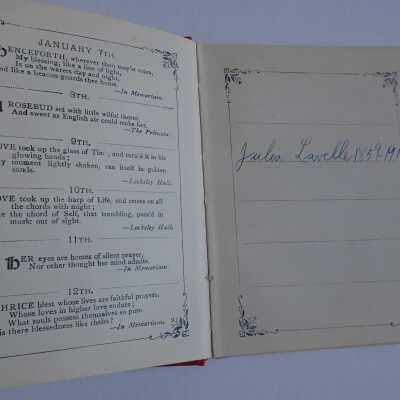 JANUARY 7TH.
HENCEFORTH, wherever thou may'st roam,
My blessing, like a line of light,
Is on the waters day and night,
And like a beacon guards thee home.
—In Memoriam.
8TH.
A ROSEBUD set with little wilful thorns,
And sweet as English air could make her.
—The Princess.
9TH.
LOVE took up the glass of Time, and turn'd it in his
glowing hands;
moment lightly shaken, ran itself in golden
sands.
—Locksley Hall.
10TH.
LOVE took up the harp of Life, and smote on all
the chords with might;
the chord of Self, that trembling, pass'd in
music out of sight.
—Locksley Hall.
11TH.
HER eyes are homes of silent prayer,
Nor other thought her mind admits.
—In Memoriam.
12TH.
THRICE blest whose lives are faithful prayers,
Whose loves in higher love endure;
What souls possess themselves so pure,
is there blessedness like theirs?
—In Memoriam.
Lavelle 1859